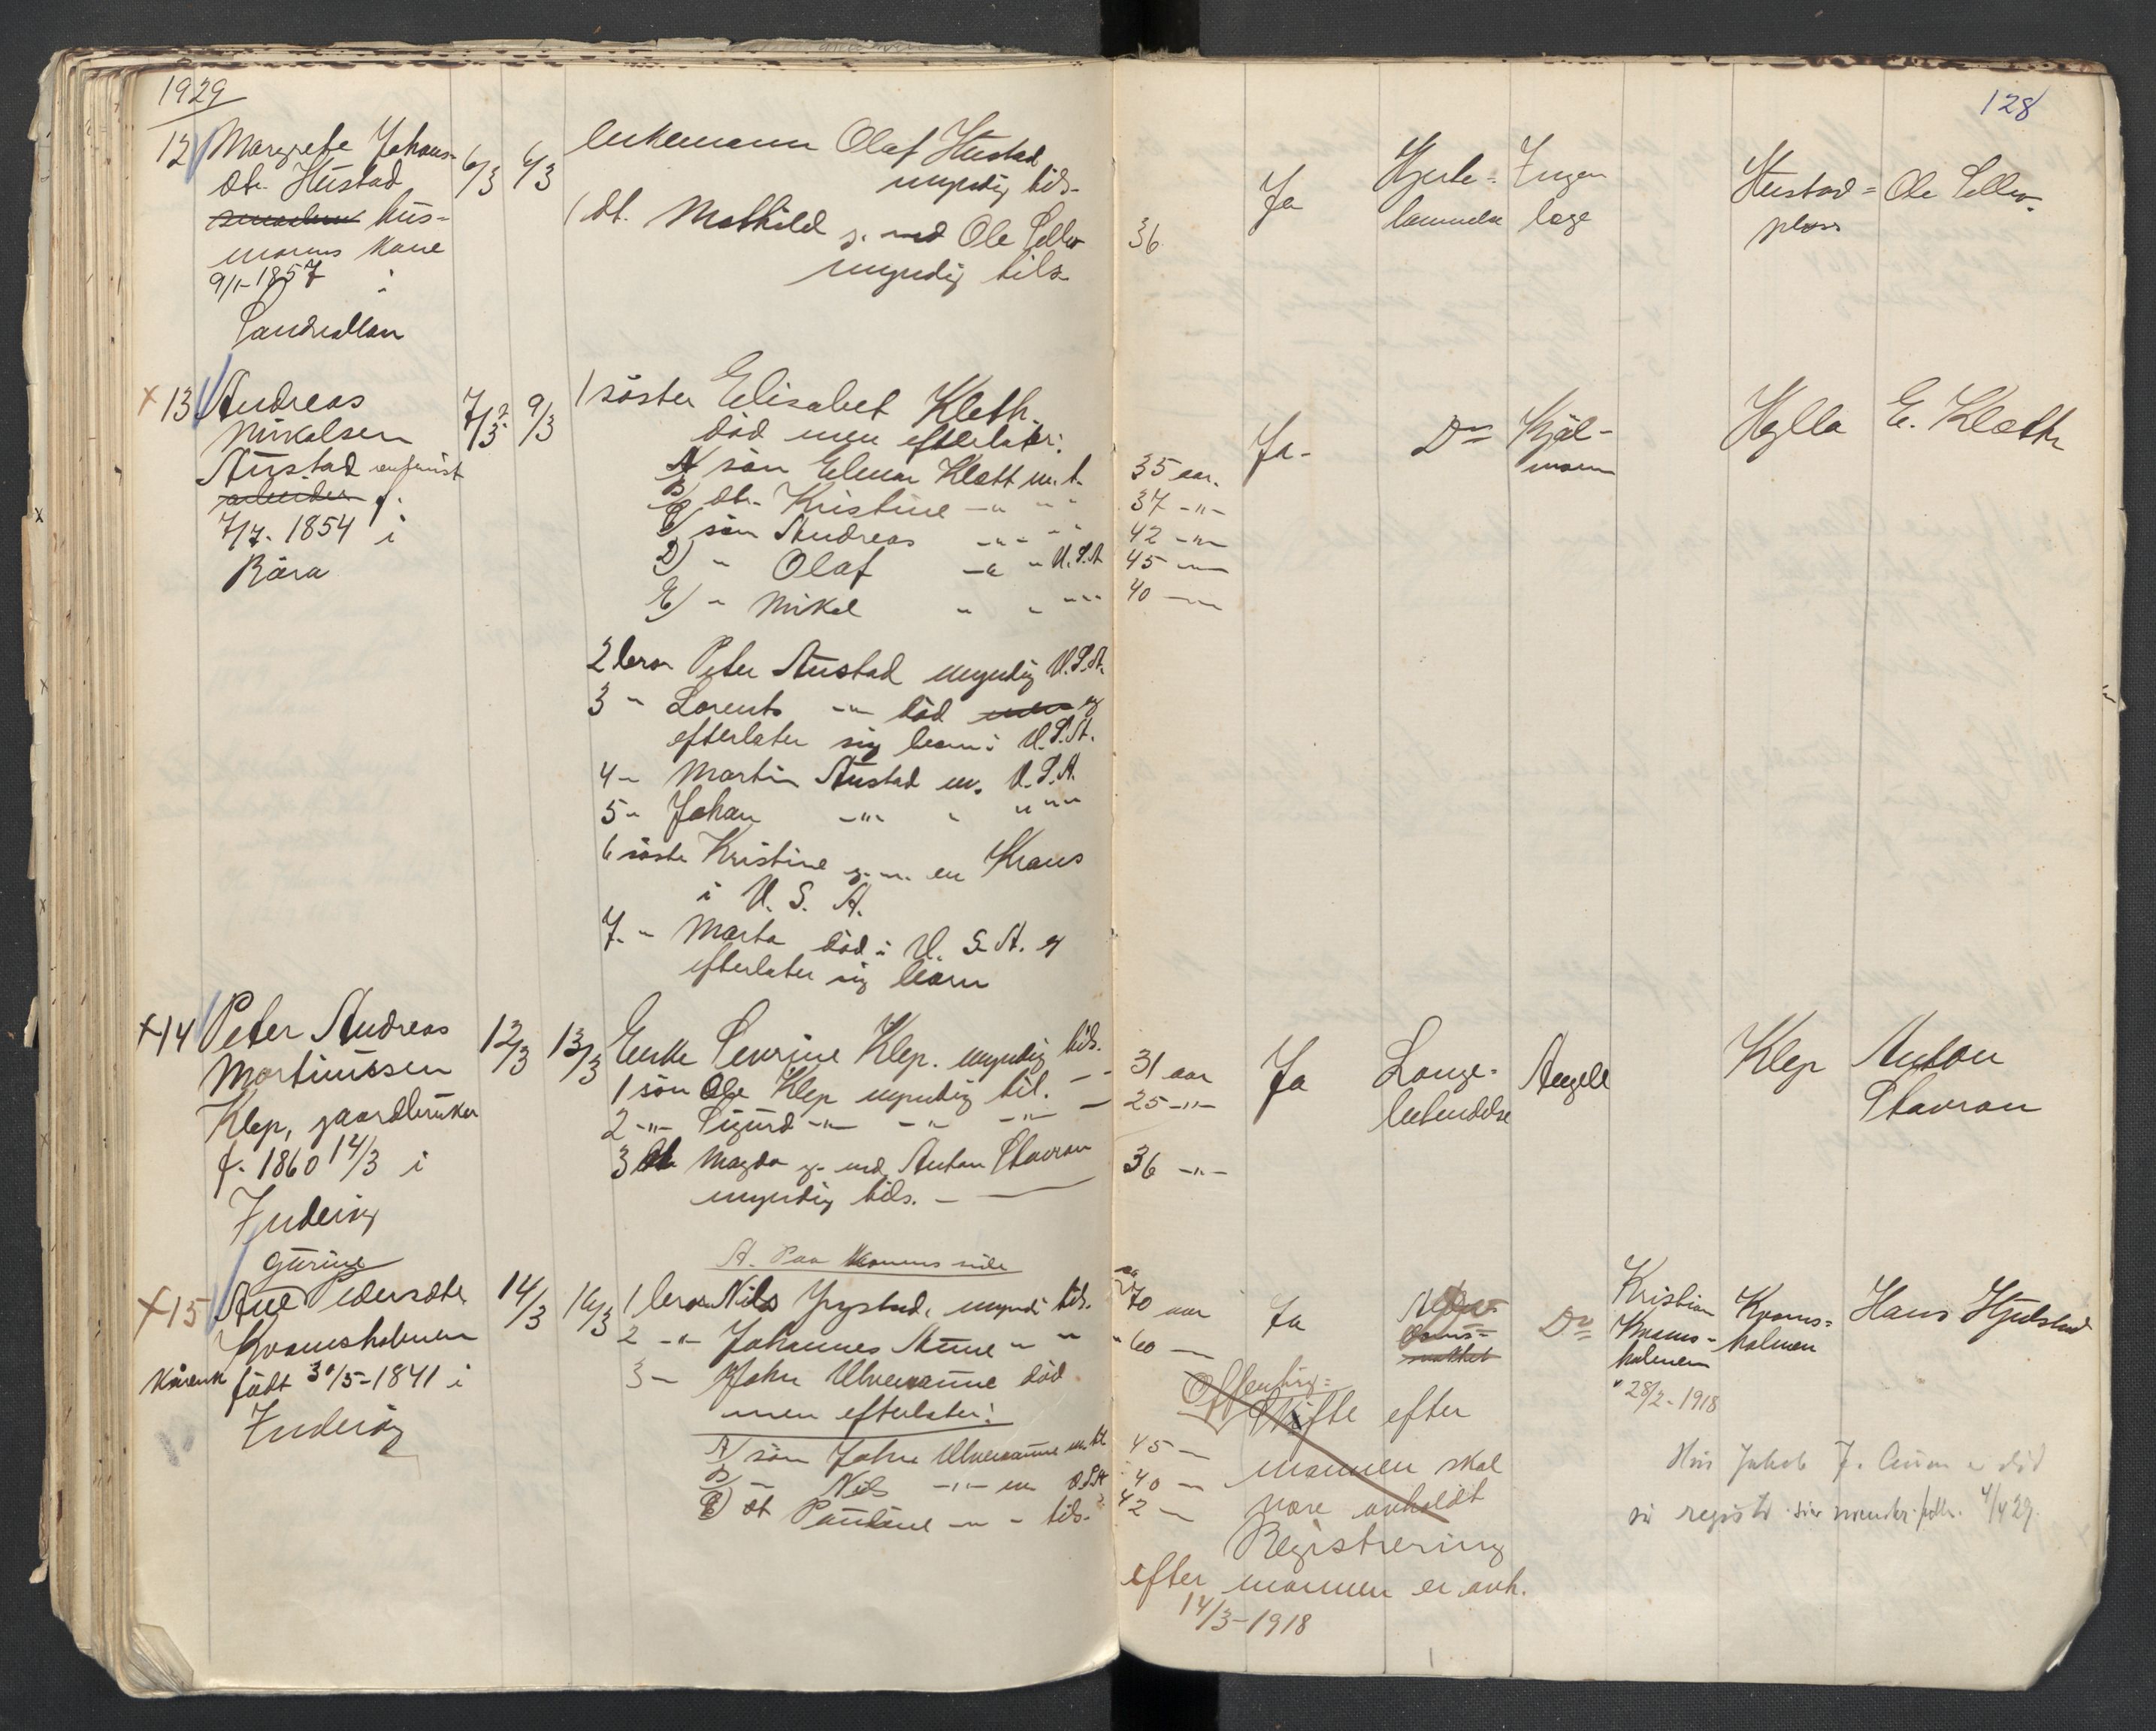 1929
128
12 Margrete Johans-
dtr. Hustad
hus-
manns kone
9/1-1857 i
Sandvollan
6/3 6/3
Enkemann Olaf Hustad
myndig tils.
1 dt. Mathild g. med Ole Letter
myndig tils.
36
Ja
Hjerte-
lammelse
Ingen
læge
Hustad-
plass
Ole
x 13 Andreas
Mikalsen
Austad
arbeider f.
7/7. 1854 i
Røra
7/3 9/3
1 söster Elisabet Kleth.
död men efterlater:
A) sön Elmar Klett m. t.
B) dt. Kristine -"- " "
C) sön Andreas -"- "
D) " Olaf -"- " U.S.A
E) " Mikal " " -"-
35 aar.
37 -"-
42 -"-
45 -"-
40 -"-
2 bror Peter Austad myndig U.S.A.
3 " Lorents -"- död men og
efterlater sig barn i U.S.A.
4 " Martin Austad m. U.S.A.
5 " Johan -"- " " "-"
6 söste Kristine g. m. en Kraus
i U. S. A.
7. " Marta död i U. S. A. og
efterlater sig barn
Ja-
Do
Kjöl-
mann
Hylla
E. Kleth
x 14 Peter Andreas
Martinussen
Klep, gaardbruker
f. 1860 14/3 i
Inderöy
12/3 13/3
Enke Sevrine Klep. myndig tils.
1 sön Ole Klep myndig til. - -
2 -"- Sigurd -"- -"- -"- -
3 dt. Magda g. med Anton Stavran
myndig tils. -
31 aar
25 -"-
36 -"-
Ja
Lunge-
betendelse
Angell
Klep
Anton
Stavran
Gurine
x 15 Ane Pedersdtr
Kvamsholmen
Kårenk född 30/5-1841 i
Inderöy
14/3 16/3
A. Paa Konens side
1 bror Nils Yrystad, myndi tils.
2 -"- Johannes Aune " "
3 - John Ulvenaune död
men efterlater:
A) sön John Ulvenaune m. til
B) - Nils -"- m U.S.A
C) dt Pauline -"- - tils.
ca
70 aar
" 60 -
45 -
40 -
42 -
Ja
Do
Kristian
Kvams-
holmen
28/2-1918
Kvams-
holmen
Hans Hjulstad
Offentlig-
Skifte efter
mannen skal
være avholdt
Registrering
efter mannen er avh.
14/3-1918
4/4 29.